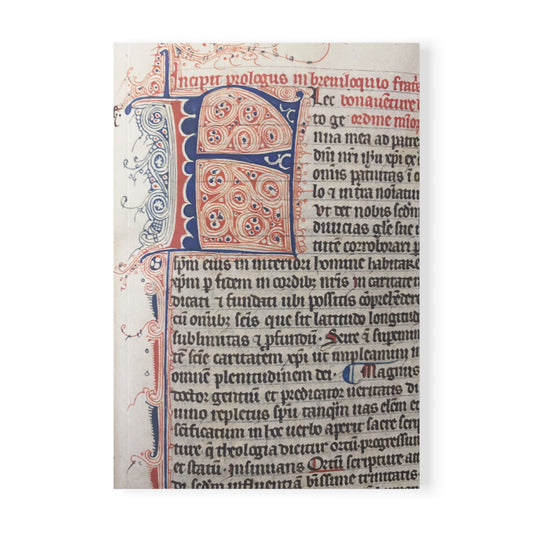 Incipit prologus in breviloquio frat
Flec bonaventure
to ge ordine mior
nua mea ad patre
dñi nr̃i ih̃u xp̃i ex
omnis pat̃nitas ĩ
lo ⁊ in t̃ra noĩatur
vt det nobis sedm
diuicias gl̃e sue
tute corroborari p
sp̃m eius in interiori homine habitare
xp̃m p fidem in cordib; ur̃is in caritate
dicati ⁊ fundati ubi possitis cõprehẽdere
cũ omib; sc̃is que sit latitudo longitud
sublimitas ⁊ ꝓfundũ. Scire ⁊ supemin
tẽ scie caritatẽm xp̃i ut impleamini in
omnẽ plenitudinem dei. Magnus
doctor gentiũ et predicator veritatis di
uino repletus sp̃u tanqm̃ uas elẽm et
sc̃ificatum in hoc verbo aperit sacre scrip
ture q̃ theologia dicitur ortũ. progressum
et statũ. insinuans Ortũ scripture att
di sedm influentiã bt̃issime trinitatis